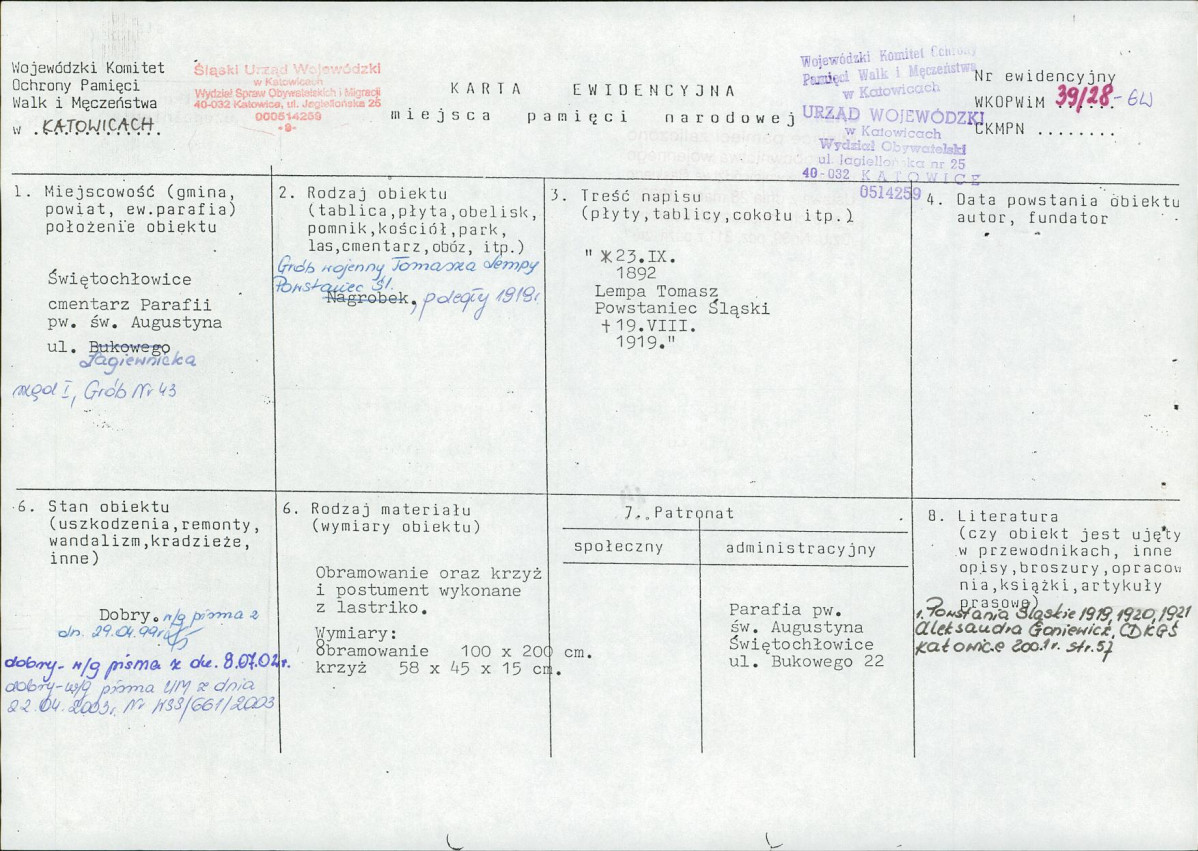 Wojewódzki Komitet
Ochrony Pamięci
Walk i Męczeństwa
w .KATOWICACH.
Śląski Urząd Wojewódzki
w Katowicach
Wydział Spraw Obywatelskich i Migracji
40-032 Katowice, ul. Jagiellońska 25
000514259
-9-
KARTA EWIDENCYJNA
miejsca pamięci narodowej
Wojewódzki Komitet Ochrony
Pamięci Walk i Męczeństwa
w Katowicach
URZĄD WOJEWÓDZKI
w Katowicach
Wydział Obywatelski
ul. Jagiellońska nr 25
40-032 KATOWICE
0514259
Nr ewidencyjny
WKOPWiM 39/28-GW
CKMPN ........
1. Miejscowość (gmina,
powiat, ew.parafia)
położenie obiektu
Świętochłowice
cmentarz Parafii
pw. św. Augustyna
ul. Bukowego
Łagiewnicka
rząd I, Grób Nr 43
2. Rodzaj obiektu
(tablica,płyta,obelisk,
pomnik,kościół,park,
las,cmentarz,obóz, itp.)
Grób wojenny Tomasza Lempy
Powstaniec Śl.
Nagrobek, poległy 1919r
3. Treść napisu
(płyty,tablicy,cokołu itp.)
" *23.IX.
1892
Lempa Tomasz
Powstaniec Śląski
†19.VIII.
1919."
4. Data powstania obiektu
autor, fundator
6. Stan obiektu
(uszkodzenia,remonty,
wandalizm,kradzieże,
inne)
Dobry. w/g pisma z
dn. 29.04.99r
dobry- w/g pisma z dn. 8.07.02r.
dobry-w/g pisma UM z dnia
22.04.2003r. Nr KSS/661/2003
6. Rodzaj materiału
(wymiary obiektu)
Obramowanie oraz krzyż
i postument wykonane
z lastriko.
Wymiary:
Obramowanie 100 x 200 cm.
krzyż 58 x 45 x 15 cm.
7. Patronat
społeczny
administracyjny
Parafia pw.
św. Augustyna
Świętochłowice
ul. Bukowego 22
8. Literatura
(czy obiekt jest ujęty
w przewodnikach, inne
opisy,broszury,opracow
nia,książki,artykuły
prasowe)
1. Powstania Śląskie 1919, 1920, 1921
Aleksandra Goniewicz, CDKGŚ
Katowice 2001r. str. 57